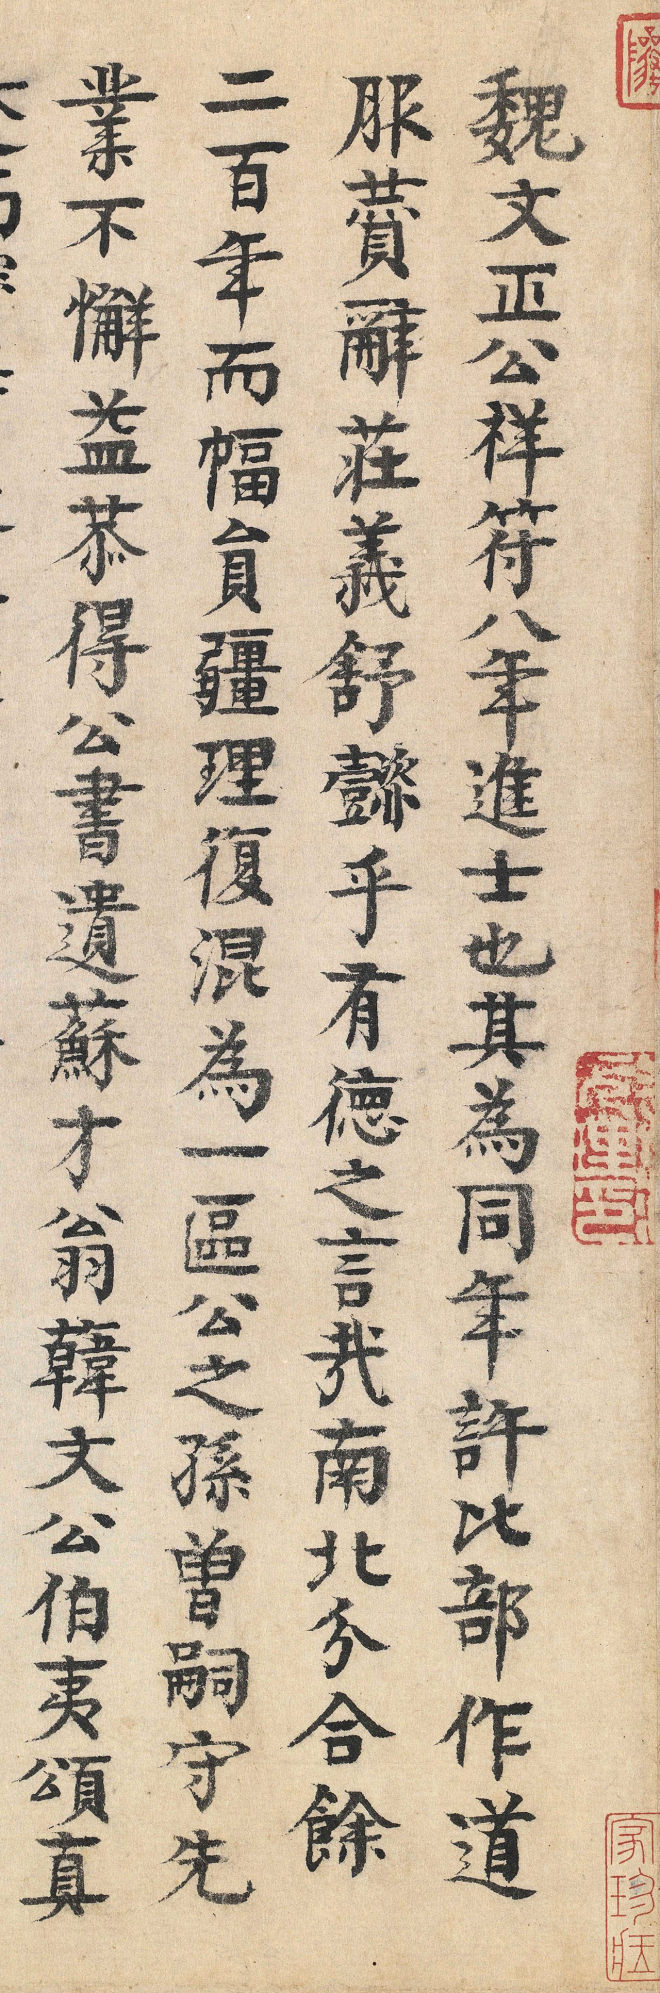 魏文正公祥符八年進士也其為同年許比部作道
服藚辭莊義舒懿乎有德之言㢤南北分合餘
二百年而幅員疆理復混為一區公之孫曾嗣守先
業不懈益恭得公書遺蘇才翁韓文公伯夷頌真
家珍